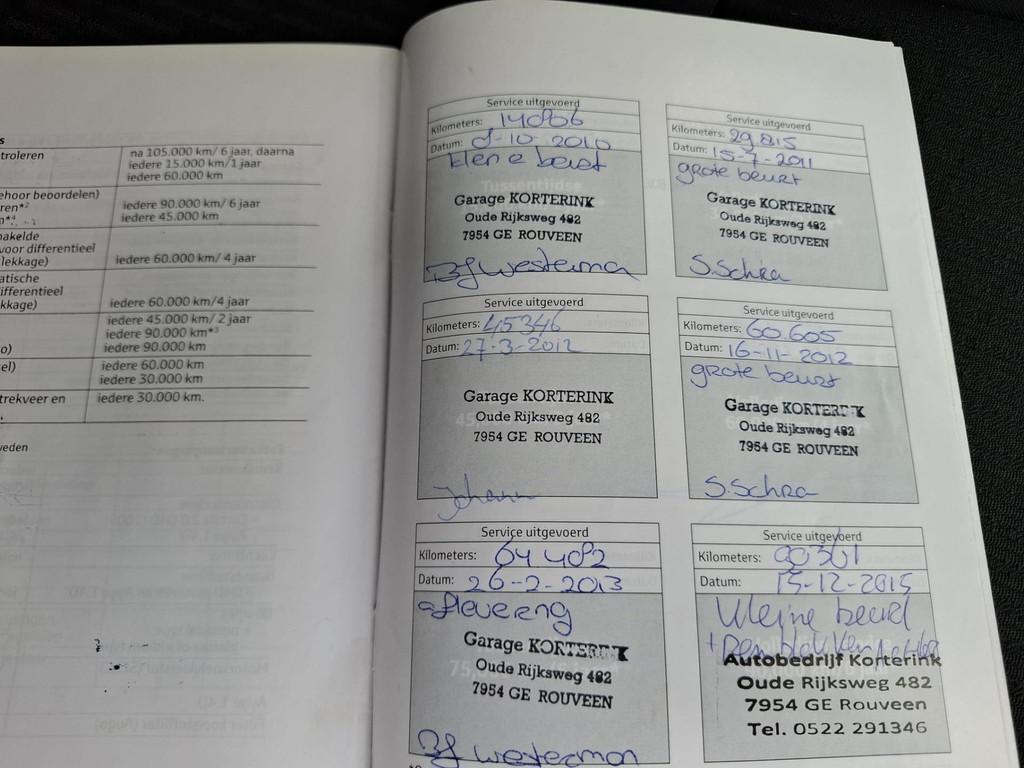 s
troleren
na 105.000 km/ 6 jaar, daarna
iedere 15.000 km/1 jaar
iedere 60.000 km
ehoor beoordelen)
ren*2
n*4
iedere 90.000 km/ 6 jaar
iedere 45.000 km
hakelde
voor differentieel
lekkage)
iedere 60.000 km/ 4 jaar
atische
ifferentieel
kkage)
iedere 60.000 km/4 jaar
iedere 45.000 km/ 2 jaar
iedere 90.000 km*3
o)
iedere 90.000 km
el)
iedere 60.000 km
iedere 30.000 km
trekveer en
iedere 30.000 km.
veden
Service uitgevoerd
Kilometers: 14086
Datum: 8-10-2010
kleine beurt
Garage KORTERINK
Oude Rijksweg 482
7954 GE ROUVEEN
Bf Westerman
Service uitgevoerd
Kilometers: 29.815
Datum: 15-7-2011
grote beurt
Garage KORTERINK
Oude Rijksweg 482
7954 GE ROUVEEN
S.Schra
Service uitgevoerd
Kilometers: 45346
Datum: 27-3-2012
Garage KORTERINK
Oude Rijksweg 482
7954 GE ROUVEEN
Johann
Service uitgevoerd
Kilometers: 60.605
Datum: 16-11-2012
grote beurt
Garage KORTERINK
Oude Rijksweg 482
7954 GE ROUVEEN
S.Schra
Service uitgevoerd
Kilometers: 64482
Datum: 26-2-2013
aflevereng
Garage KORTERINK
Oude Rijksweg 482
7954 GE ROUVEEN
Bf Westerman
Service uitgevoerd
Kilometers: 90361
Datum: 15-12-2015
Kleine beurt
+ Remblokken
Autobedrijf Korterink
Oude Rijksweg 482
7954 GE Rouveen
Tel. 0522 291346